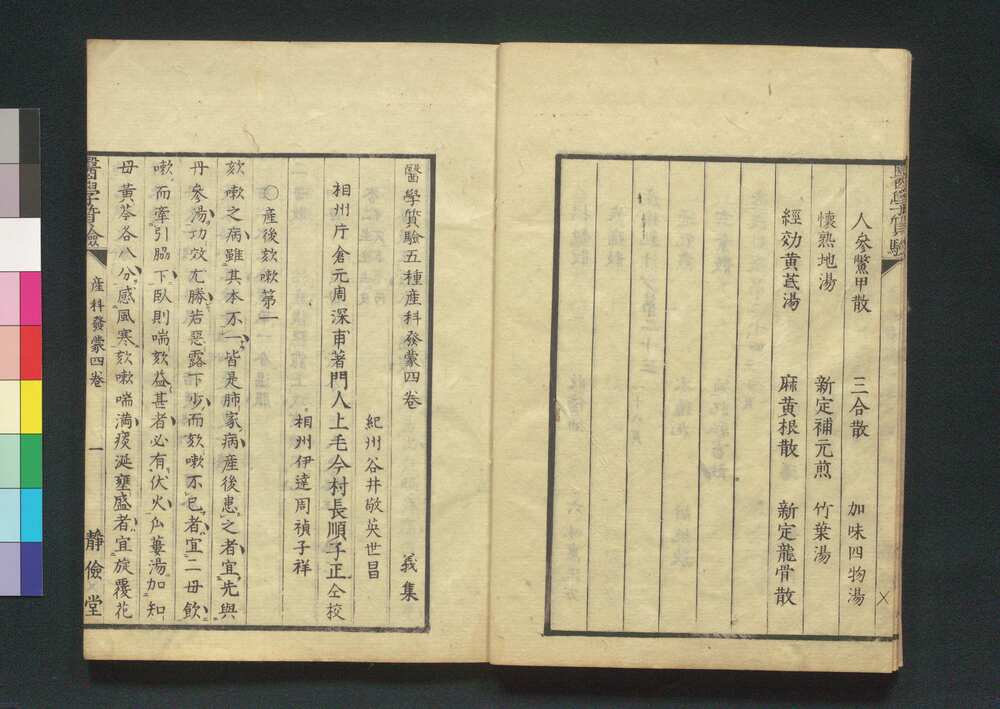 人參鱉甲散　三合散　加味四物湯
懷熟地湯　新定補元煎　竹葉湯
經効黄芪湯　麻黄根散　新定龍骨散
醫學質驗五種産科發蒙四卷　義集
相州片倉元周深甫著門人上毛今村長順子正仝校
紀州谷井敬英世昌
相州伊達周禎子祥
○産後欬嗽第一
欬嗽之病雖其本不一皆是肺家病産後患之者宜先與
丹參湯功效尤勝若惡露下少而欬嗽不已者宜二母飲
嗽而牽引脇下臥則喘欬益甚者必有伏火宜蔞湯加知
母黄芩各八分感風寒欬嗽喘満痰涎壅盛者宜旋覆花
醫學質驗
産科發蒙四卷
一
靜儉堂